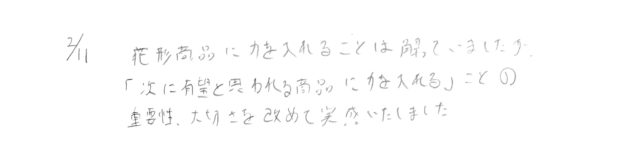 2/11 花形商品に力を入れることは解っていましたが、
「次に有望と思われる商品に力を入れる」ことの
重要性、大切さを改めて実感いたしました